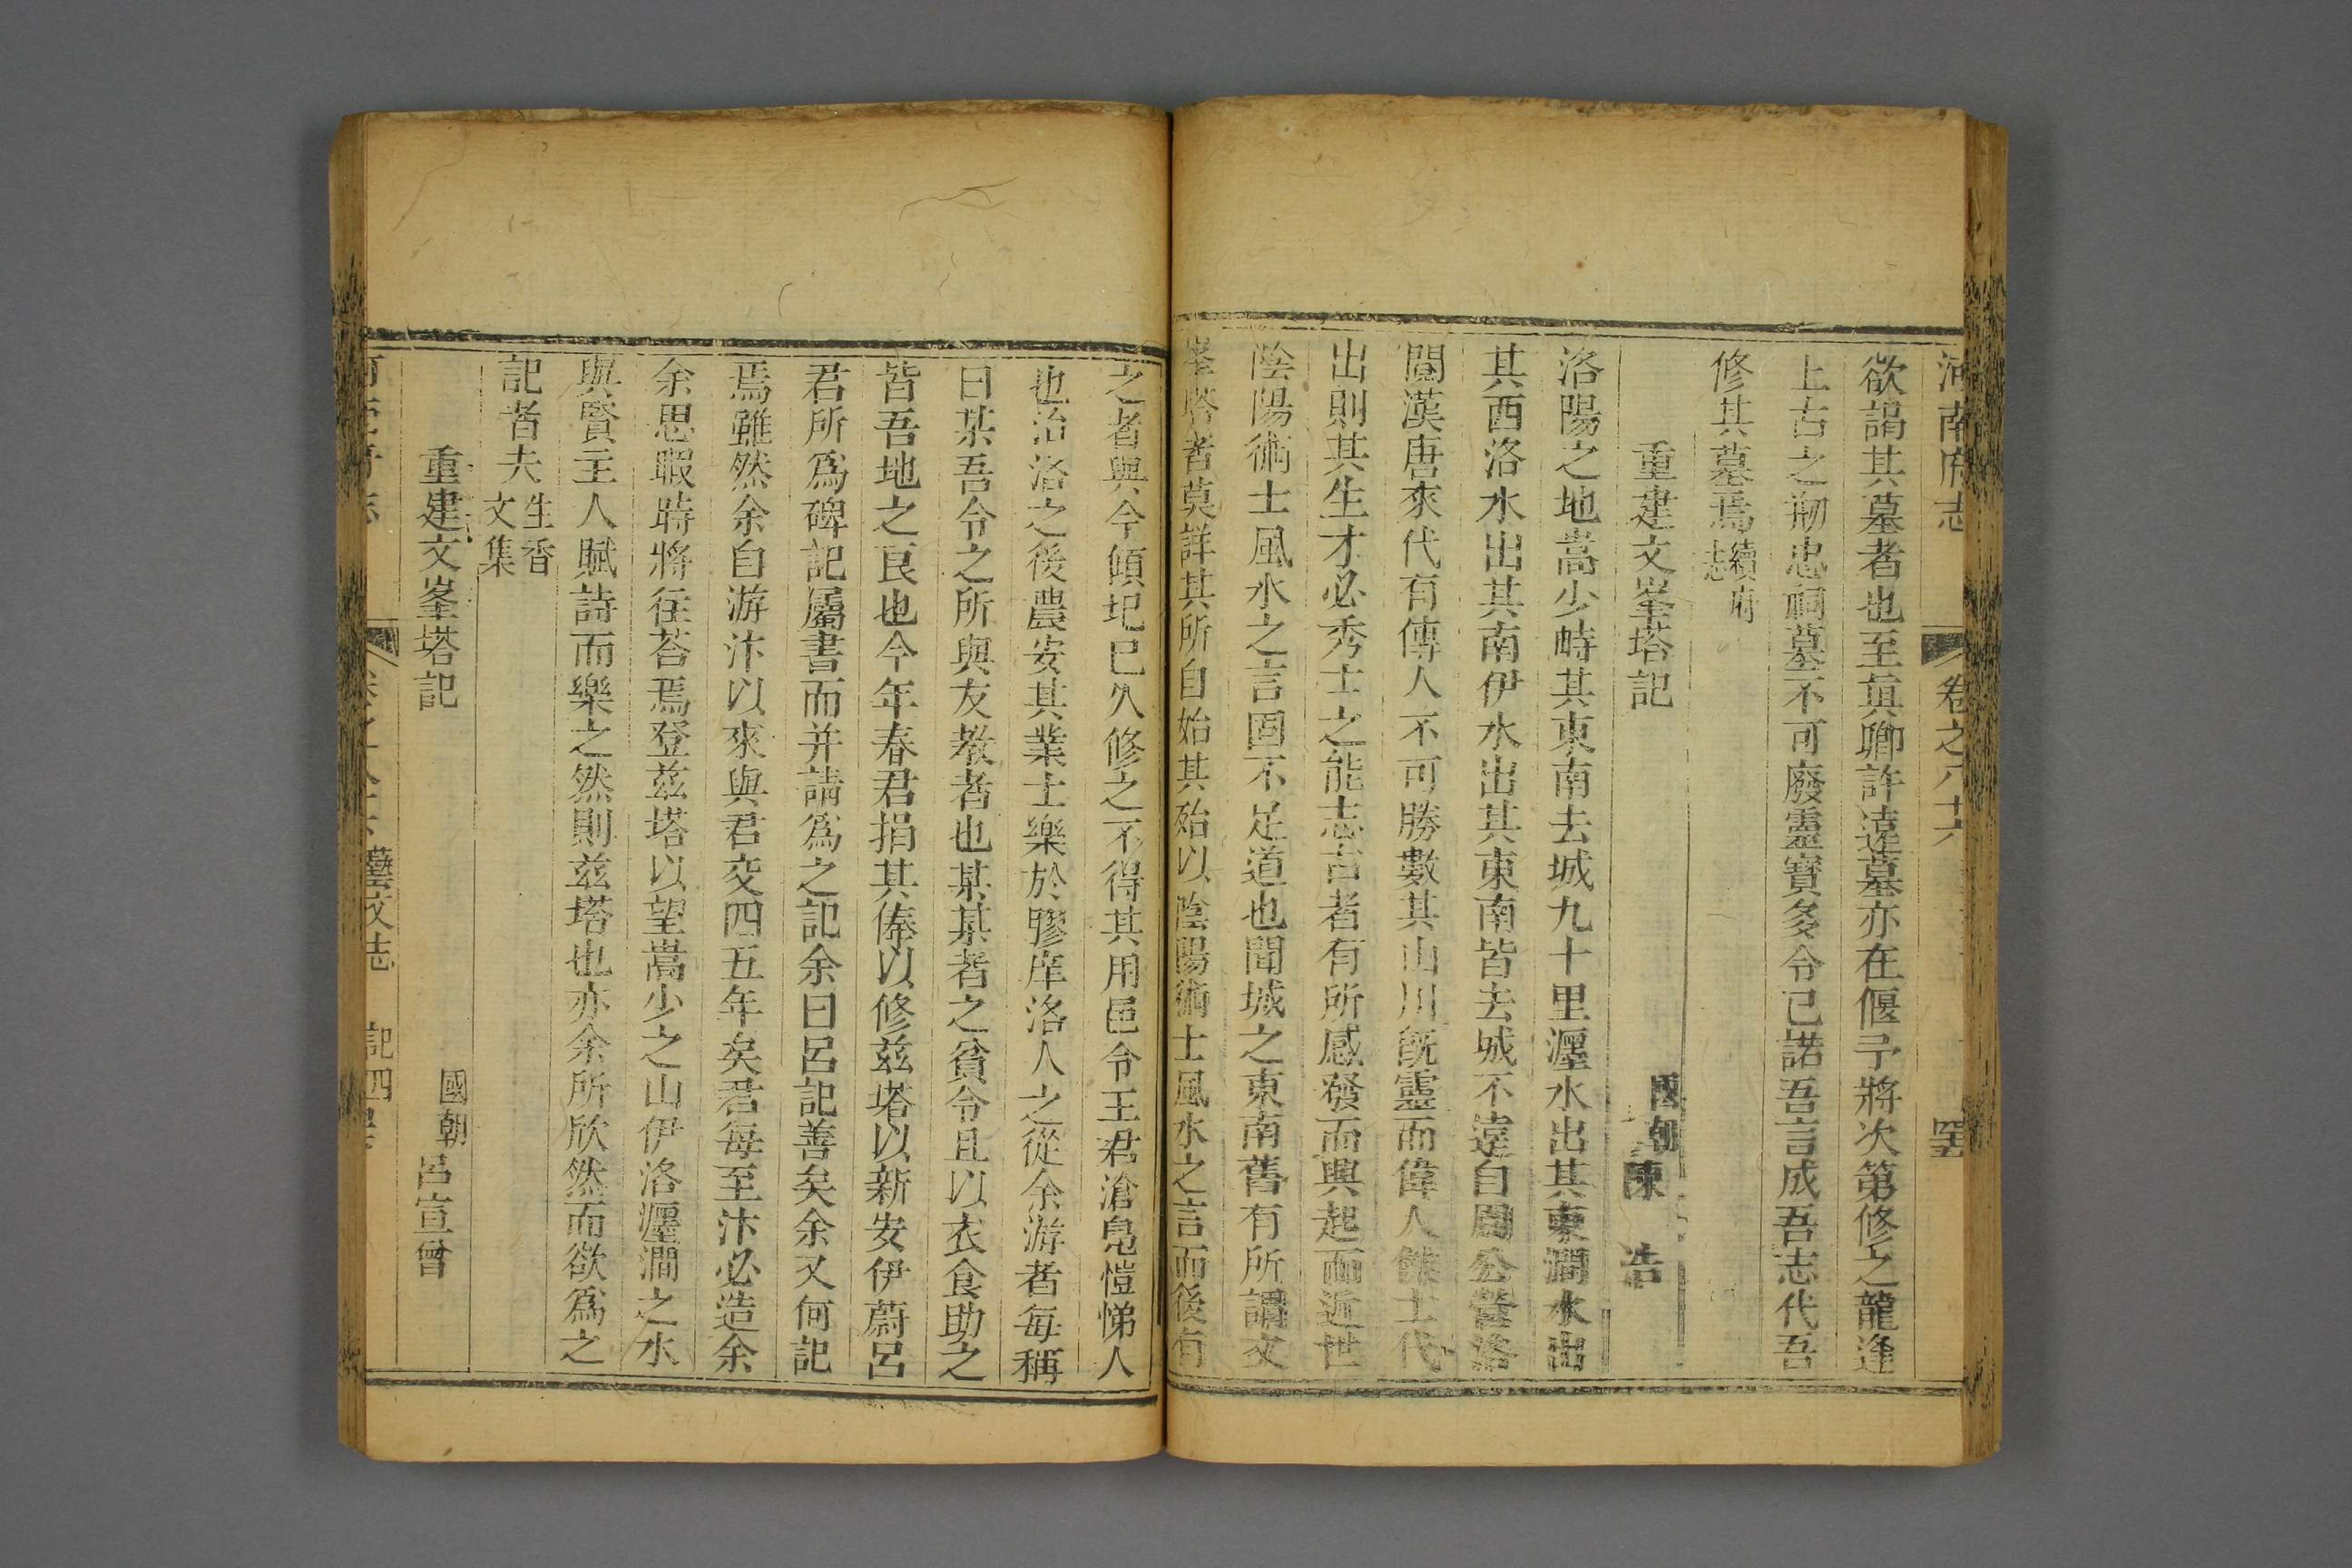 河南府志 卷之八十六
欲謁其墓者也至眞卿許遠墓亦在偃予將次第修之龍逄
上古之剏忠祠墓不可廢靈寶多令已諾吾言成吾志代吾
修其墓焉續府志
重建文峯塔記
國朝陳浩
洛陽之地嵩少峙其東南去城九十里瀍水出其東澗水出
其西洛水出其南伊水出其東南皆去城不遠自周公營洛
閱漢唐來代有傳人不可勝數其山川旣靈而偉人傑士代
出則其生才必秀士之能志古者有所感發而興起而近世
陰陽術士風水之言固不足道也聞城之東南舊有所謂文
峯塔者莫詳其所自始其殆以陰陽術士風水之言而後有
之者與今傾圮已久修之不得其用邑令王君滄鳧愷悌人
也治洛之後農安其業士樂於膠庠洛人之從余游者每稱
曰某吾令之所與友教者也某某者之貧令且以衣食助之
皆吾地之良也今年春君捐其俸以修兹塔以新安伊蔚呂
君所爲碑記屬書而并請爲之記余曰呂記善矣余又何記
焉雖然余自游汴以來與君交四五年矣君每至汴必造余
余思暇時將往荅焉登兹塔以望嵩少之山伊洛瀍澗之水
與賢主人賦詩而樂之然則兹塔也亦余所欣然而欲爲之
記者夫生香文集
重建文峯塔記
國朝呂宣曾
藝文志 記四